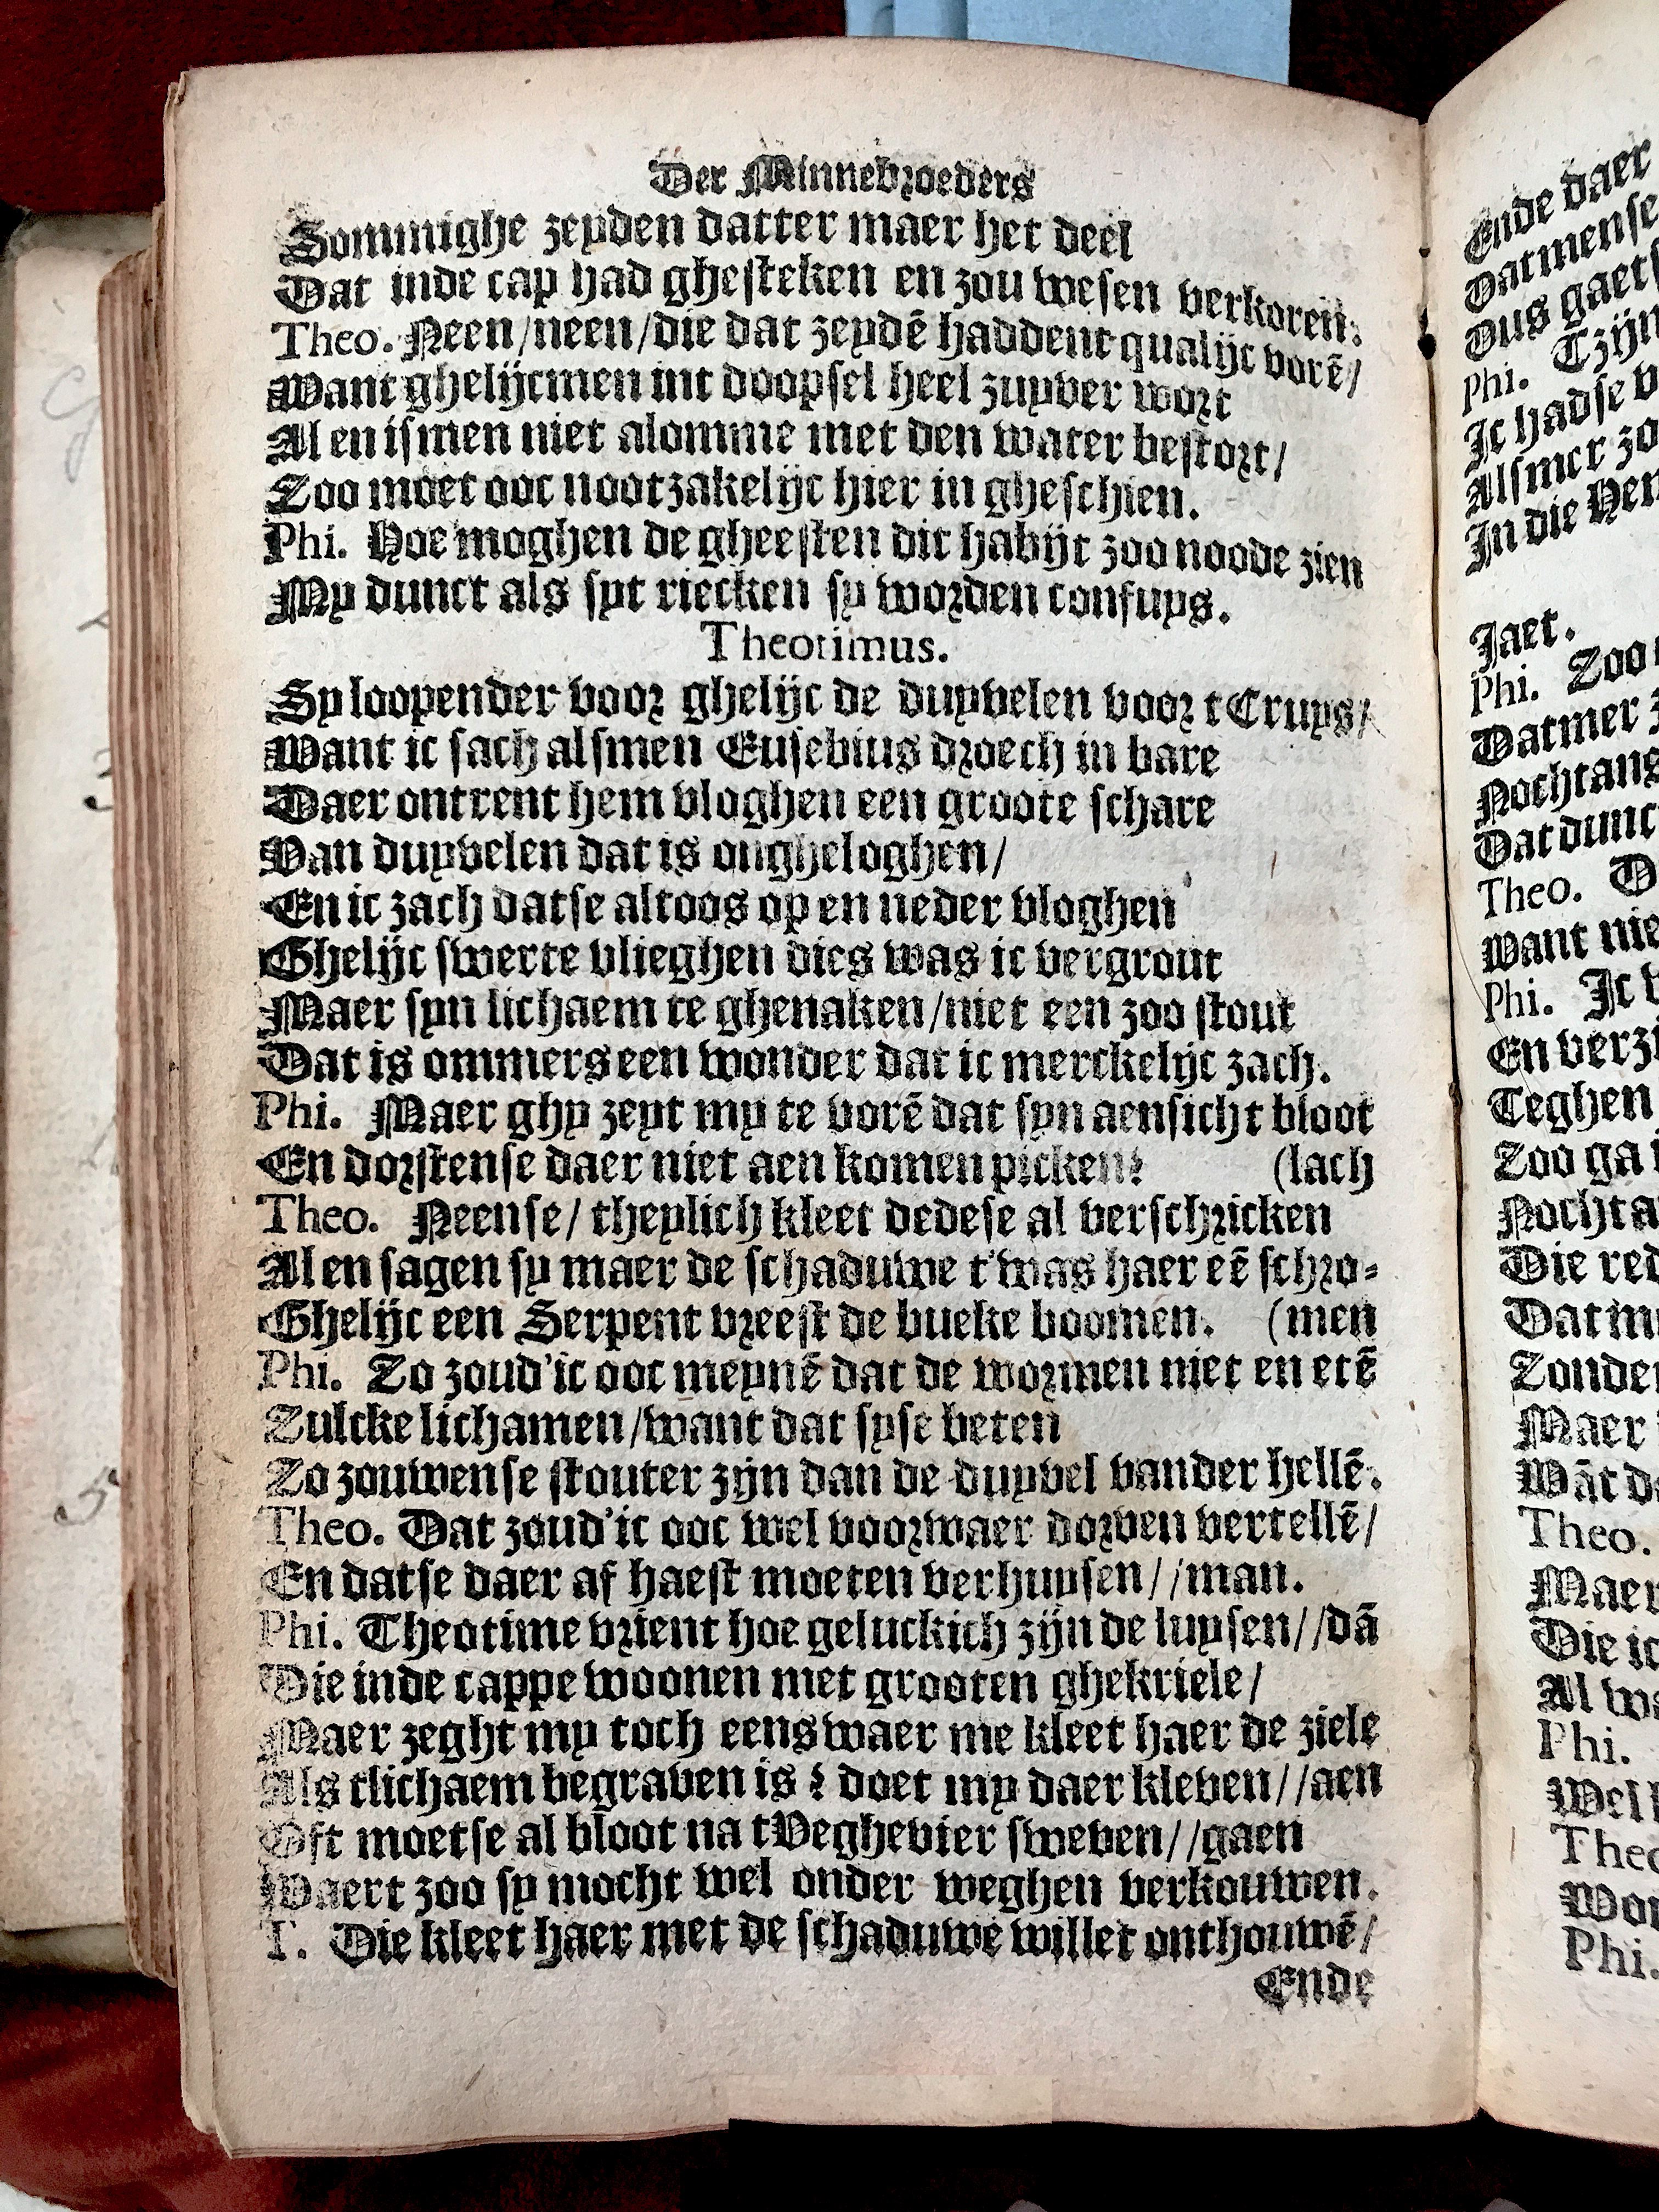 Der Minnebroeders
Sommighe zeyden datter maer het deel
Dat inde cap had ghesteken en zou wesen verkoren:
Theo. Neen/neen/die dat zeydē haddent qualijc vorē/
Want ghelijcmen int doopsel heel zuyver wort
Al en ismen niet alomme met den water bestort/
Zoo moet ooc nootzakelijc hier in gheschien.
Phi. Hoe moghen de gheesten dit habijt zoo noode zien
My dunct als syt riecken sy worden confuys.
Theotimus.
Sy loopender voor ghelijc de duyvelen voor tCruys/
Want ic sach alsmen Eusebius droech in bare
Daer ontrent hem vloghen een groote schare
Van duyvelen dat is ongheloghen/
En ic zach datse altoos op en neder vloghen
Ghelijc swerte vlieghen dies was ic vergrout
Maer syn lichaem te ghenaken/niet een zoo stout
Dat is ommers een wonder dat ic merckelijc zach.
Phi. Maer ghy zeyt my te vorē dat syn aensicht bloot
En dorstense daer niet aen komen picken? (lach
Theo. Neense/ theylich kleet dedese al verschricken
Al en sagen sy maer de schaduwe t'was haer eē schro-
Ghelijc een Serpent vreest de bueke boomen. (men
Phi. Zo zoud'ic ooc meynē dat de wormen niet en etē
Zulcke lichamen/want dat syse beten
Zo zouwense stouter zijn dan de duyvel vander hellē.
Theo. Dat zoud'ic ooc wel voorwaer dorven vertellē/
En datse daer af haest moeten verhuysen//man.
Phi. Theotime vrient hoe geluckich zijn de luysen//dā
Die inde cappe woonen met grooten ghekriele/
Maer zeght my toch eens waer me kleet haer de ziele
Als tlichaem begraven is ? doet my daer kleven//aen
Oft moetse al bloot na tVeghevier sweven//gaen
Waert zoo sy mocht wel onder weghen verkouwen.
T. Die kleet haer met de schaduwe willet onthouwē/
Ende
Ende daer
Datmense
Dus gaets
Phi. Tzijn
Ic hadse v
Alsmer zo
In die Hen
Jaet.
Phi. Zoo
Datmer z
Nochtans
Dat dunc
Theo. D
Want nie
Phi. Ic
En verzi
Teghen
Zoo ga i
Nochta
Die red
Dat m
Zonder
Maer
Wāt d
Theo.
Maer
Die ic
Al wa
Phi.
Wel
Theo
Wor
Phi.